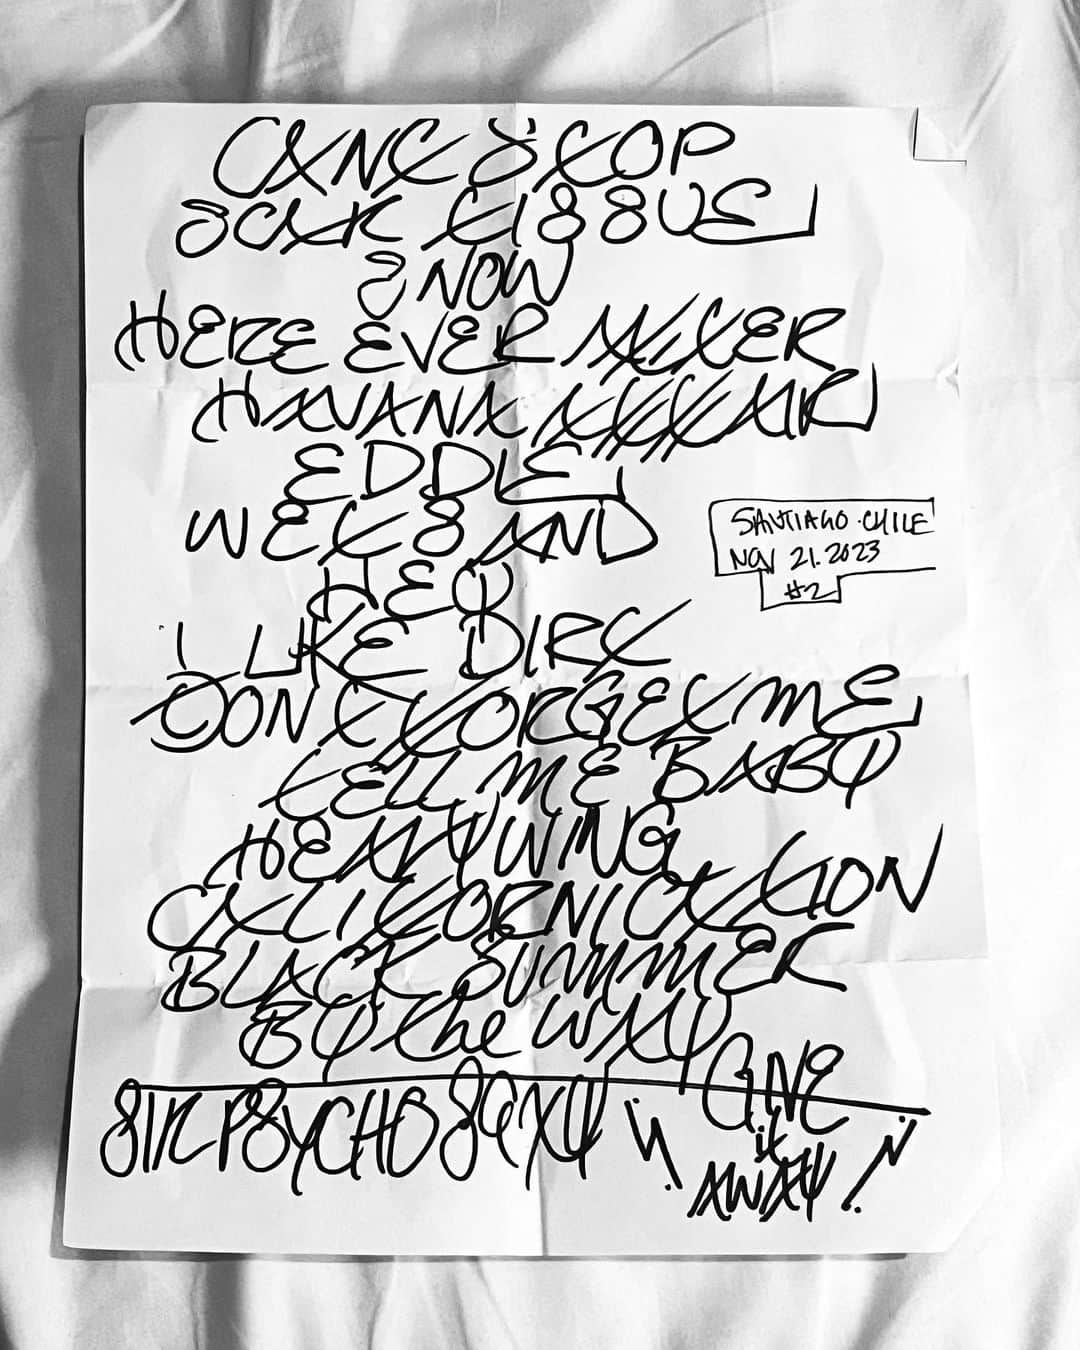 CANT STOP
SCAR TISSUE
SNOW
HERE EVER AFTER
HAVANA AFFAIR
EDDIE
WET SAND
SANTIAGO · CHILE
NOV 21. 2023
#2
HEY
I LIKE DIRT
DONT FORGET ME
TELL ME BABY
HEAVY WING
CALIFORNICATION
BLACK SUMMER
BY the WAY
SIR PSYCHO SEXY
GIVE
it
AWAY